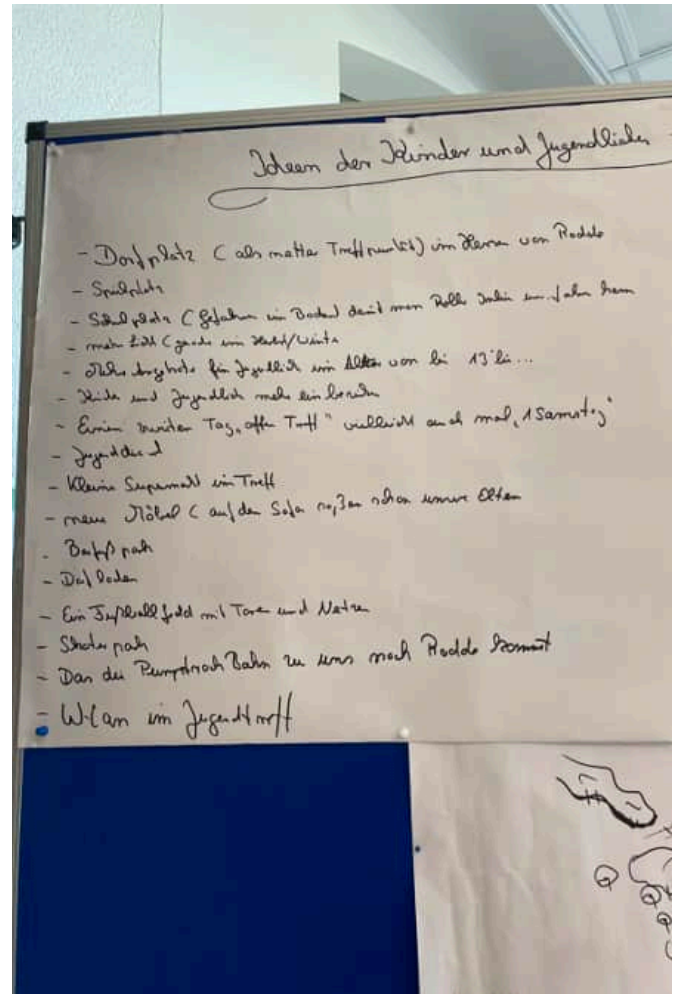 Ideen der Kinder und Jugendlichen
- Dorfplatz ( als Treffpunkt) im Herzen von Rodde
- Spielplatz
- Schulplatz ( im Boden damit man Rolle fahren kann
- mehr Licht ( gerade im Herbst/Winter
- Mehr Angebote für Jugendliche im Alter von bis 13 bis...
- Kinder und Jugendlich mehr ein
- Einen zweiten Tag „offen Treff" vielleicht auch mal „1 Samstag"
- Jugend
- Kleine Supermarkt im Treff
- neue Möbel ( auf den Sofa saßen schon unsere Eltern
- park
- Dorfladen
- Ein Fußballfeld mit Tore und Netzen
- Skaterpark
- Das die Pumptrack Bahn zu uns nach Rodde kommt
- Wlan im Jugendtreff